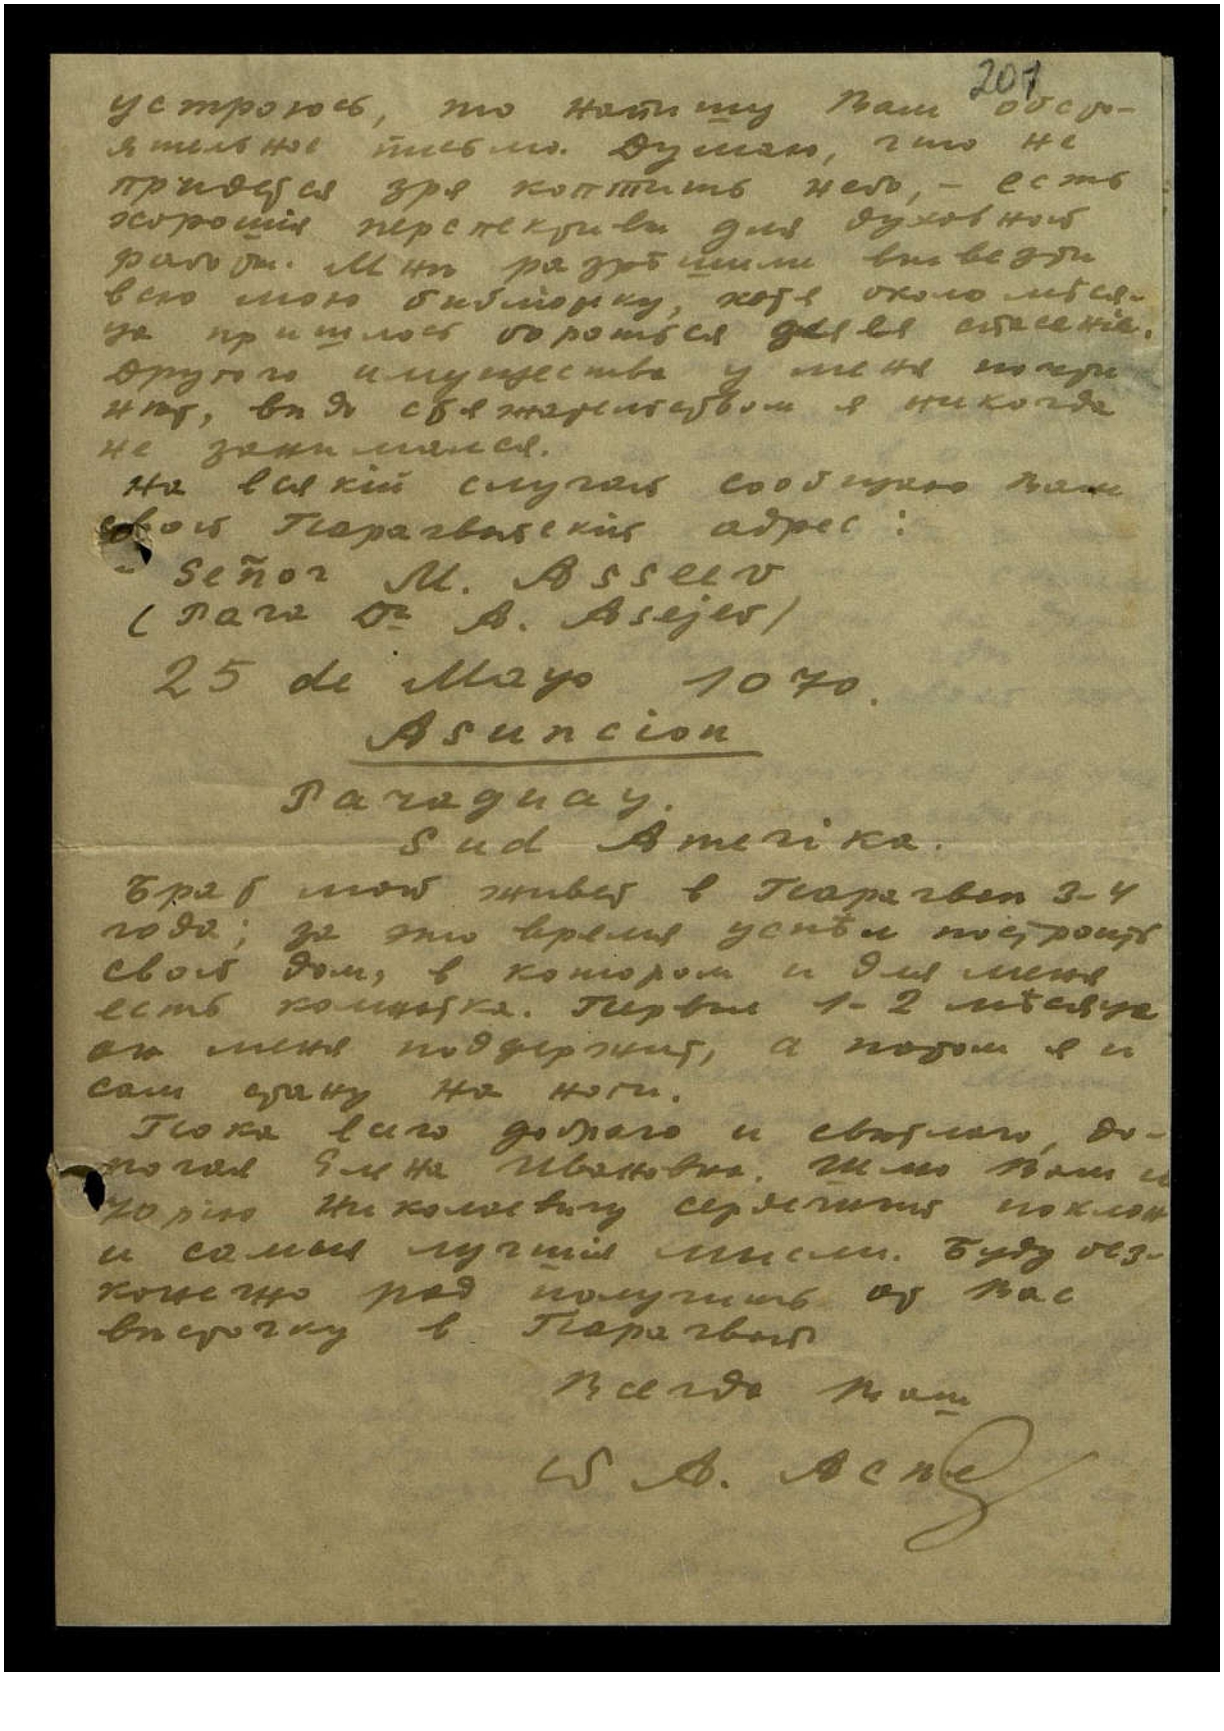 201
устроюсь, то напишу Вам обсто-
ятельное письмо. Думаю, что не
придется зря коптить небо, – есть
хорошія перспективы для духовной
работы. Мнѣ разрѣшили вывезти
всю мою библіотеку, хотя около мѣся-
ца пришлось бороться для ея спасенія.
Другого имущества у меня почти
нѣт, вѣдь стяжательством я никогда
не занимался.
На всякій случай сообщаю Вам
свой Парагвайскій адрес:
– Señor M. Asseev
(Para Dr A. Asejev)
25 de Mayo 1070.
Asuncion
Paraguay.
Sud Amerika.
Брат мой живет в Парагваѣ 3-4
года; за это время успѣл построить
свой дом, в котором и для меня
есть комнатка. Первые 1-2 мѣсяца
он меня поддержит, а потом я и
сам стану на ноги.
Пока всего добраго и свѣтлаго, до-
рогая Елена Ивановна. Шлю Вам и
Юрію Николаевичу сердечный поклон
и самыя лучшія мысли. Буду без-
конечно рад получить от Вас
вѣсточку в Парагвай
Всегда Ваш
А. Асѣе